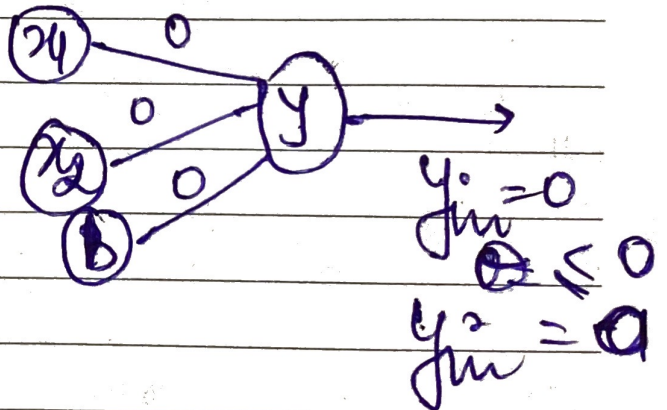 x1 0
0 y
x2 0
b
yin = 0
θ ≤ 0
yin = 0